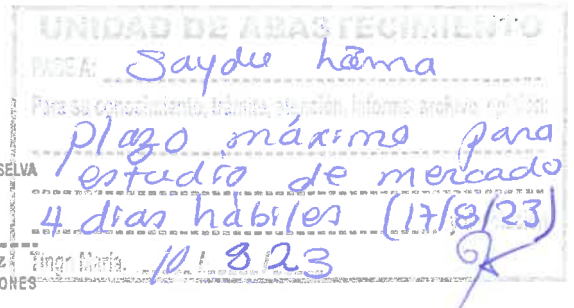 UNIDAD DE ABASTECIMIENTO
PASE A: Saydu
Para su conocimiento, trámite, atención, informe, archivo, opinión
plazo máximo para
SELVA
estudio de mercado
4 dias hábiles (17/8/23)
10/823
Z
ONES